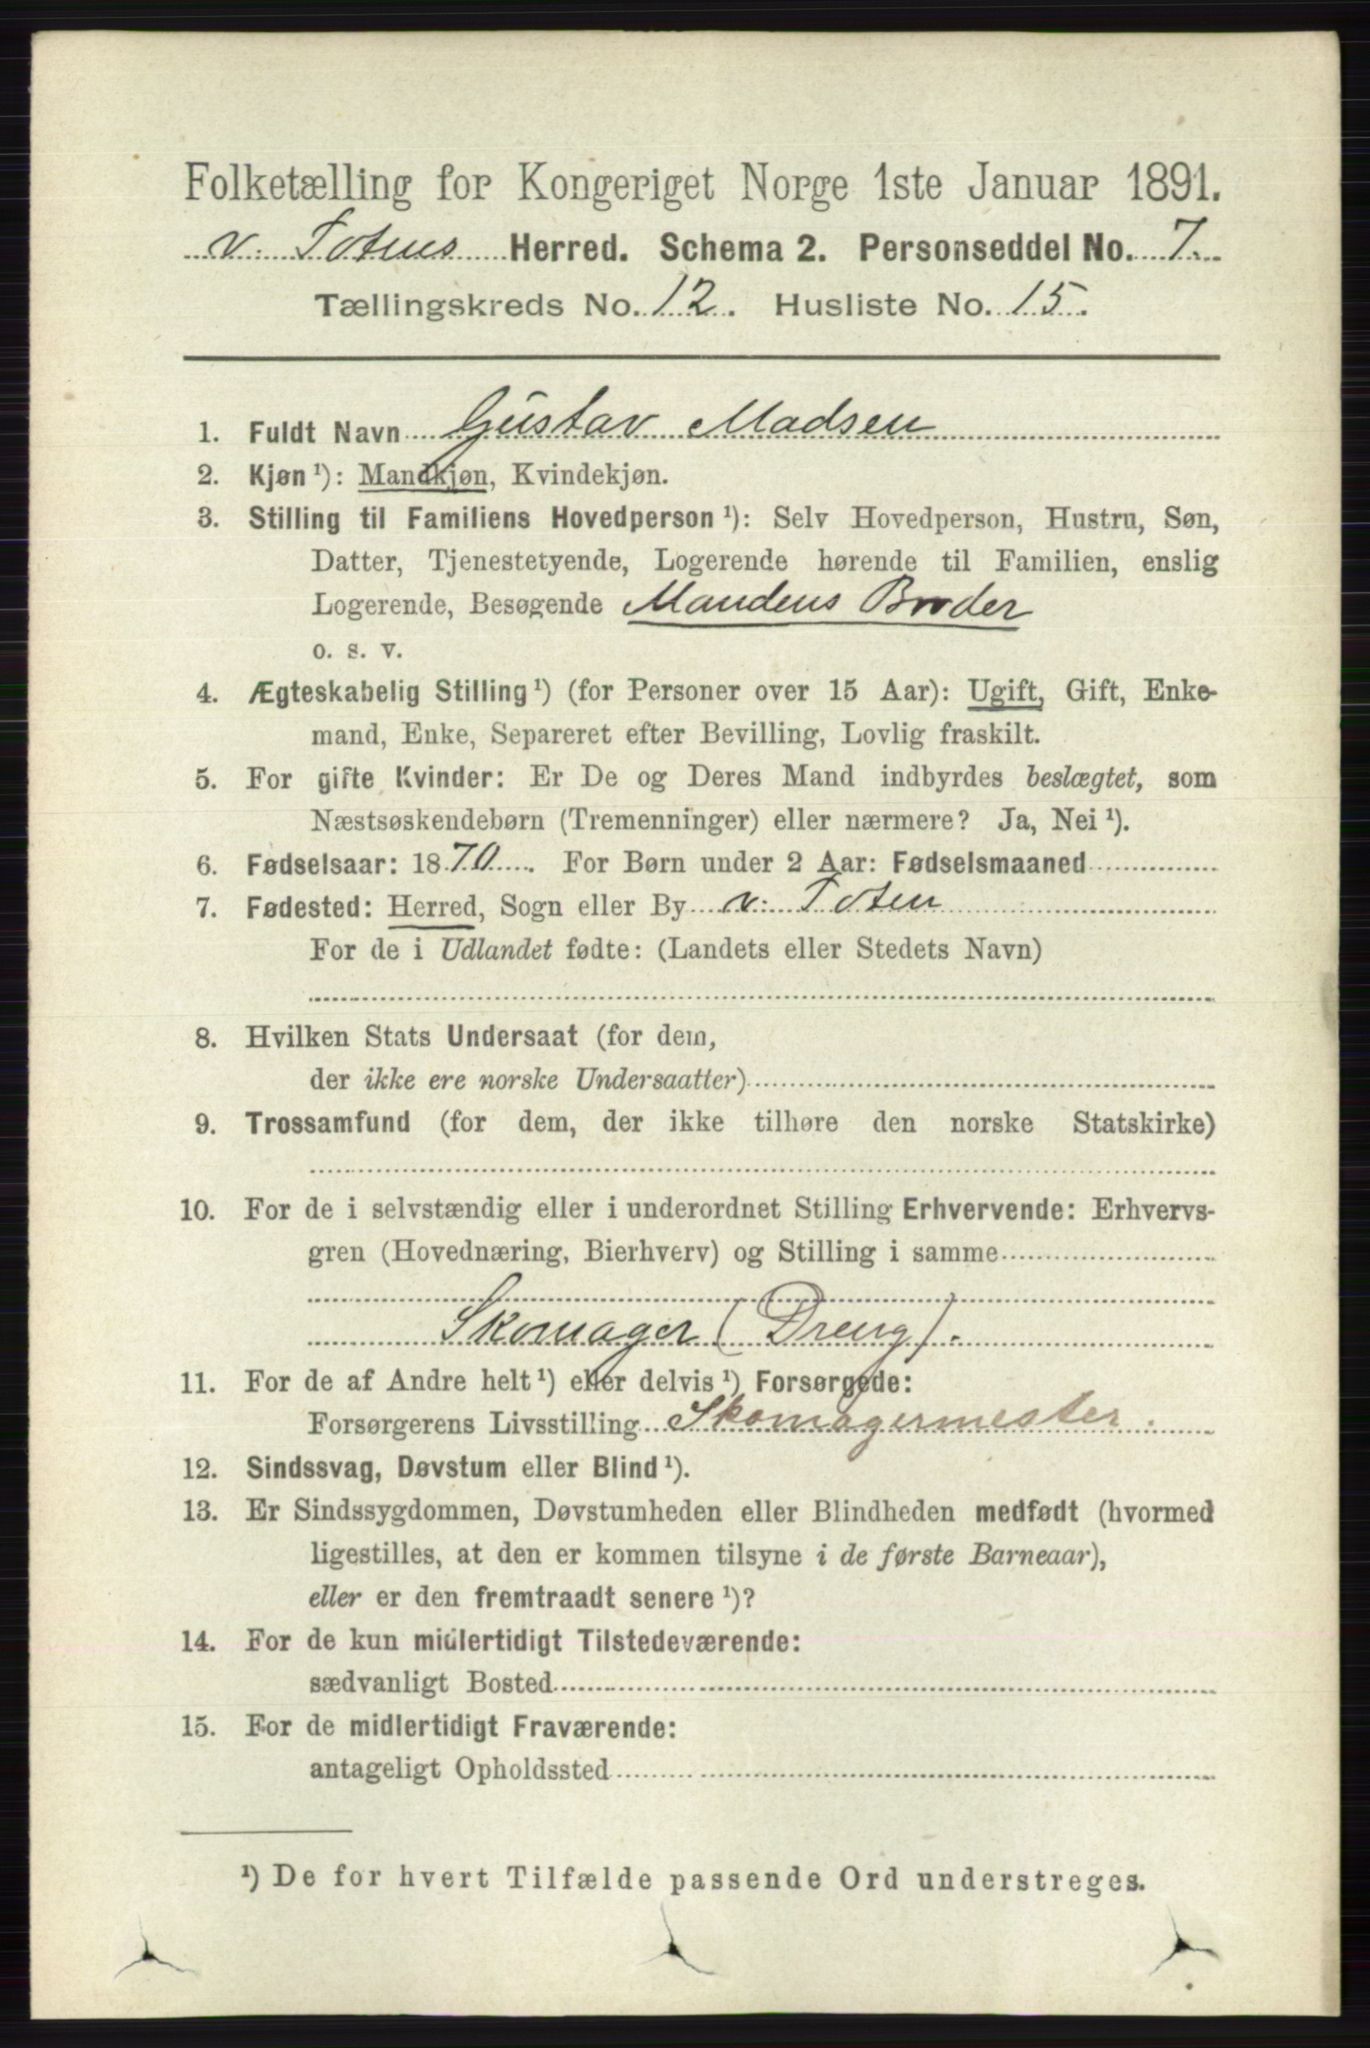 Folketælling for Kongeriget Norge 1ste Januar 1891.
v. Totens Herred. Schema 2. Personseddel No. 7.
Tællingskreds No. 12. Husliste No. 15.
1. Fuldt Navn Gustav Madsen
2. Kjøn ¹): Mandkjøn, Kvindekjøn.
3. Stilling til Familiens Hovedperson ¹): Selv Hovedperson, Hustru, Søn,
Datter, Tjenestetyende, Logerende hørende til Familien, enslig
Logerende, Besøgende Mandens Broder
o. s. v.
4. Ægteskabelig Stilling ¹) (for Personer over 15 Aar): Ugift, Gift, Enke-
mand, Enke, Separeret efter Bevilling, Lovlig fraskilt.
5. For gifte Kvinder: Er De og Deres Mand indbyrdes beslægtet, som
Næstsøskendebørn (Tremenninger) eller nærmere? Ja, Nei ¹).
6. Fødselsaar: 1870. For Børn under 2 Aar: Fødselsmaaned
7. Fødested: Herred, Sogn eller By v. Toten
For de i Udlandet fødte: (Landets eller Stedets Navn)
8. Hvilken Stats Undersaat (for dem,
der ikke ere norske Undersaatter)
9. Trossamfund (for dem, der ikke tilhøre den norske Statskirke)
10. For de i selvstændig eller i underordnet Stilling Erhvervende: Erhvervs-
gren (Hovednæring, Bierhverv) og Stilling i samme
Skomager (Dreng).
11. For de af Andre helt ¹) eller delvis ¹) Forsørgede:
Forsørgerens Livsstilling Skomagermester.
12. Sindssvag, Døvstum eller Blind ¹).
13. Er Sindssygdommen, Døvstumheden eller Blindheden medfødt (hvormed
ligestilles, at den er kommen tilsyne i de første Barneaar),
eller er den fremtraadt senere ¹)?
14. For de kun midlertidigt Tilstedeværende:
sædvanligt Bosted
15. For de midlertidigt Fraværende:
antageligt Opholdssted
¹) De for hvert Tilfælde passende Ord understreges.